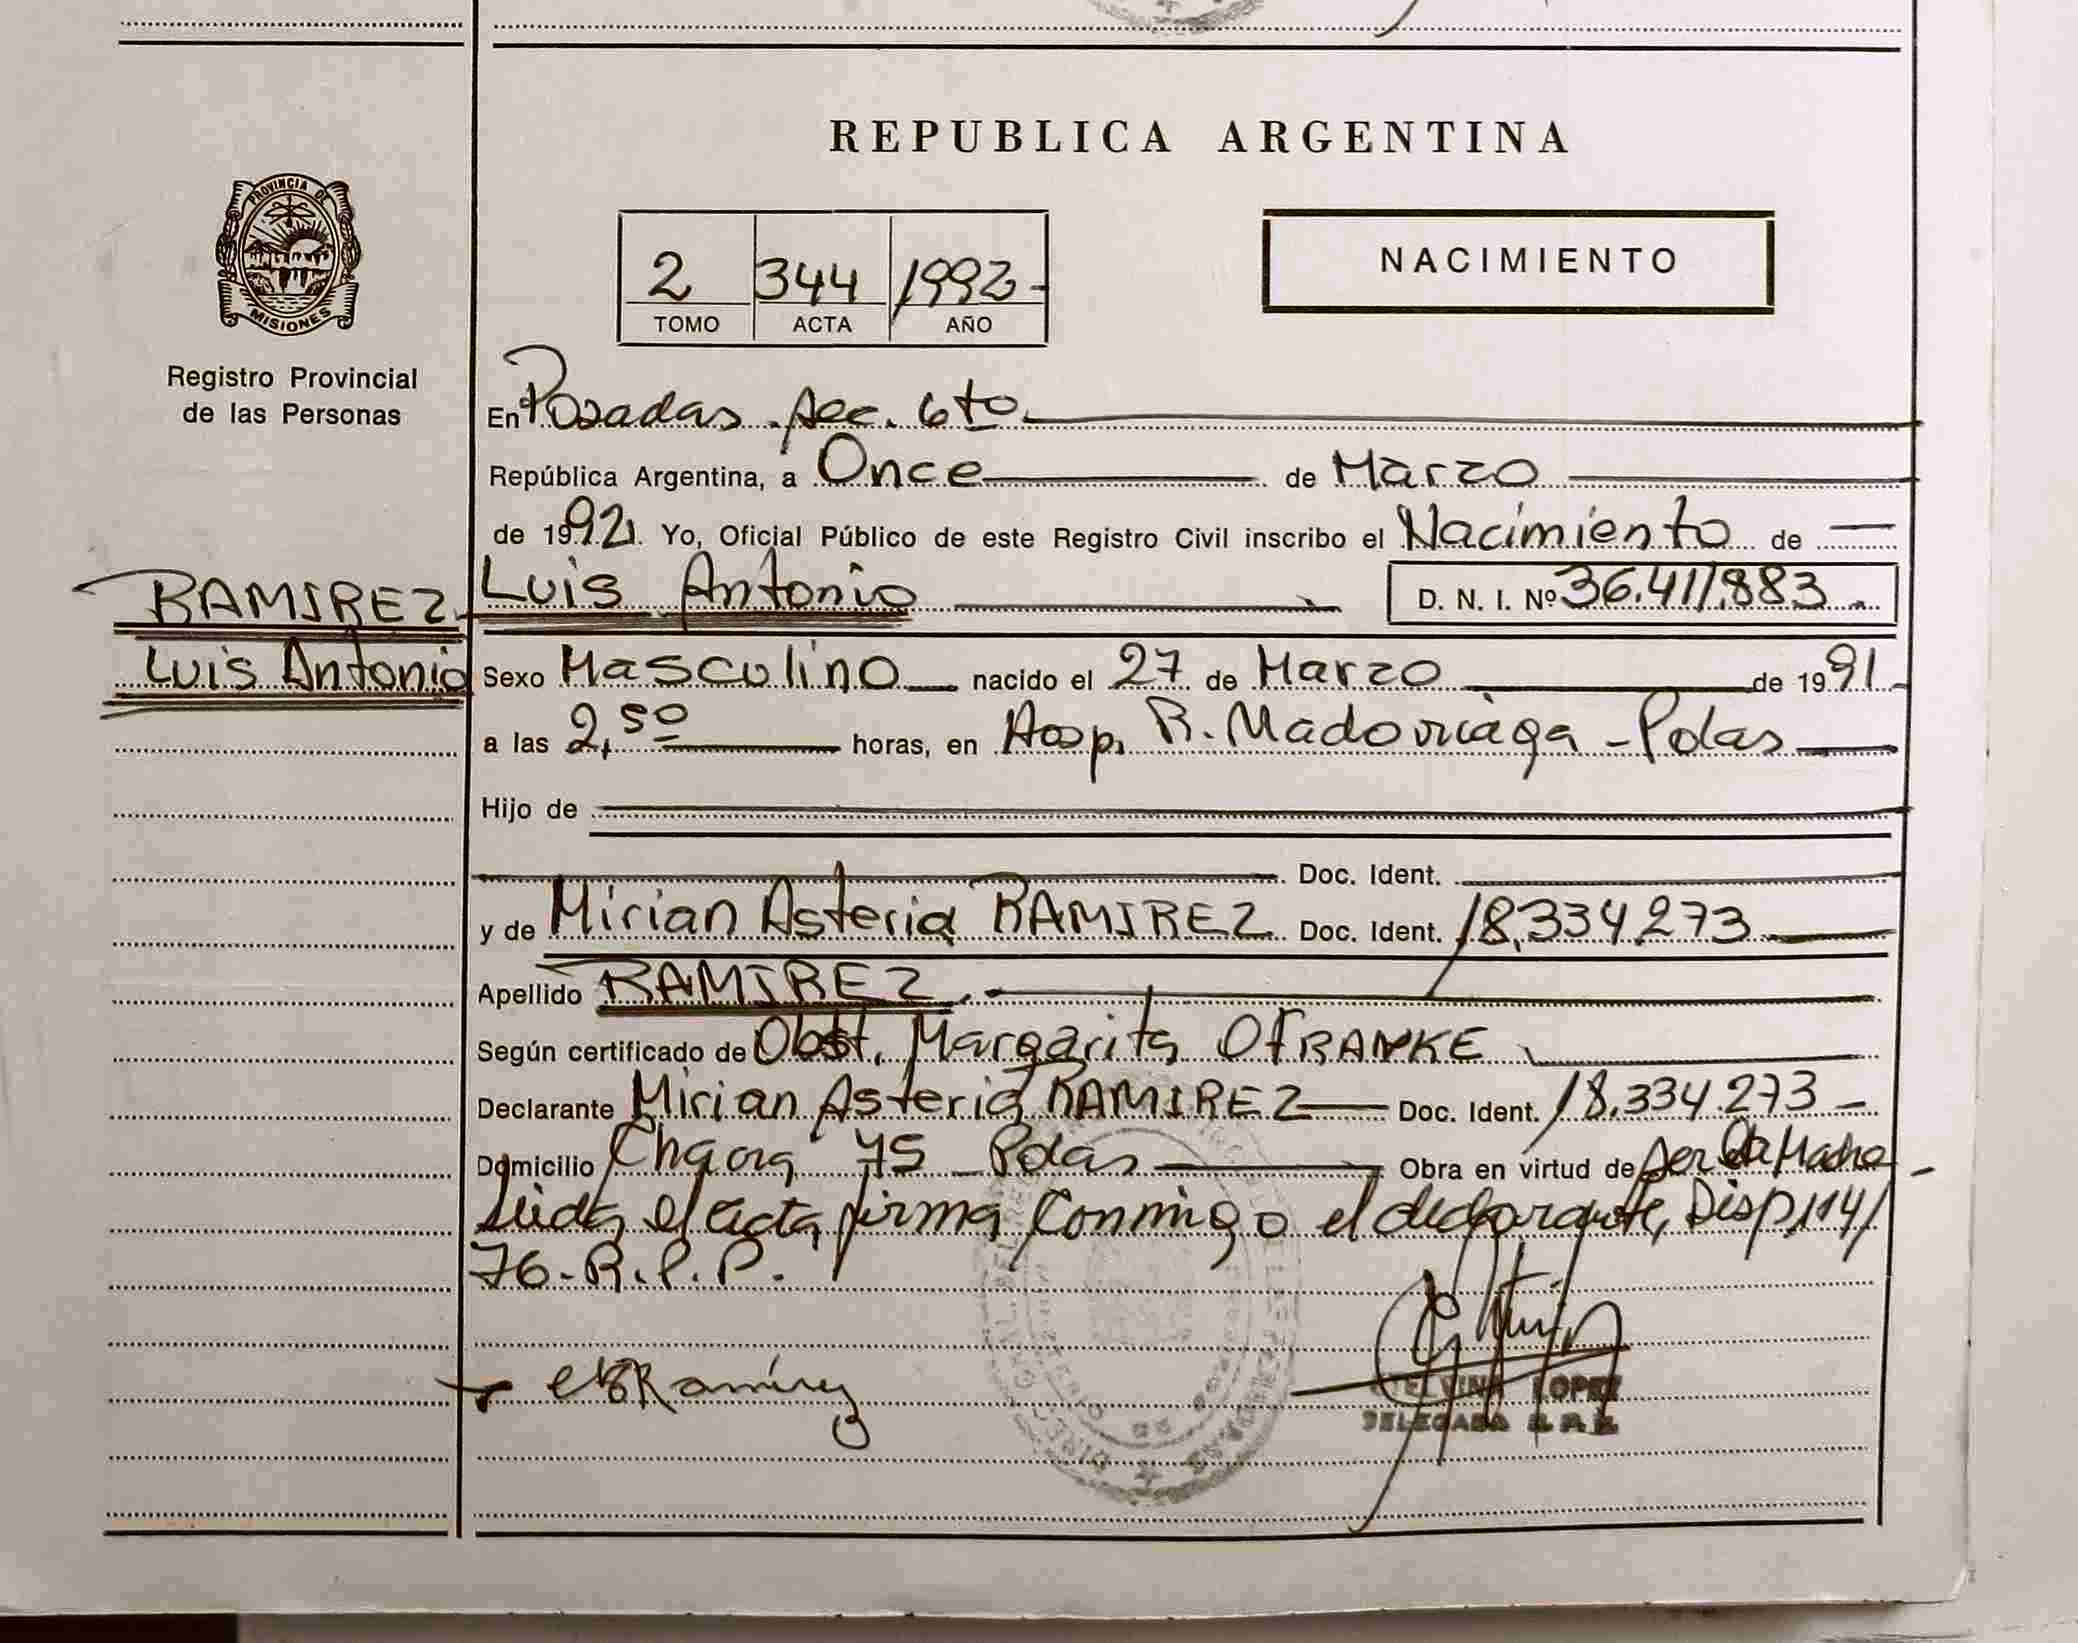 REPUBLICA ARGENTINA
PROVINCIA DE
MISIONES
Registro Provincial
de las Personas
2 344 1992-
TOMO ACTA AÑO
NACIMIENTO
En Posadas sec. 6to.
República Argentina, a Once de Marzo
de 1992. Yo, Oficial Público de este Registro Civil inscribo el Nacimiento de
RAMIREZ
Luis Antonio
Luis Antonio D. N. I. Nº 36.411.883
Sexo Masculino nacido el 27 de Marzo de 1991
a las 2,50 horas, en Hosp. R. Madoriaga - Pdas
Hijo de
Doc. Ident.
y de Mirian Asteria RAMIREZ Doc. Ident. 18.334.273
Apellido RAMIREZ
Según certificado de Obst. Margarita O FRANKE
Declarante Mirian Asteria RAMIREZ Doc. Ident. 18.334.273
Domicilio Chacra 75 - Pdas Obra en virtud de ser la Madre
Leida el acta, firma conmigo el declarante, Disp. 114/
76-R.P.P.
Ramirez
ETELVINA LOPEZ
DELEGADA R. P. P.